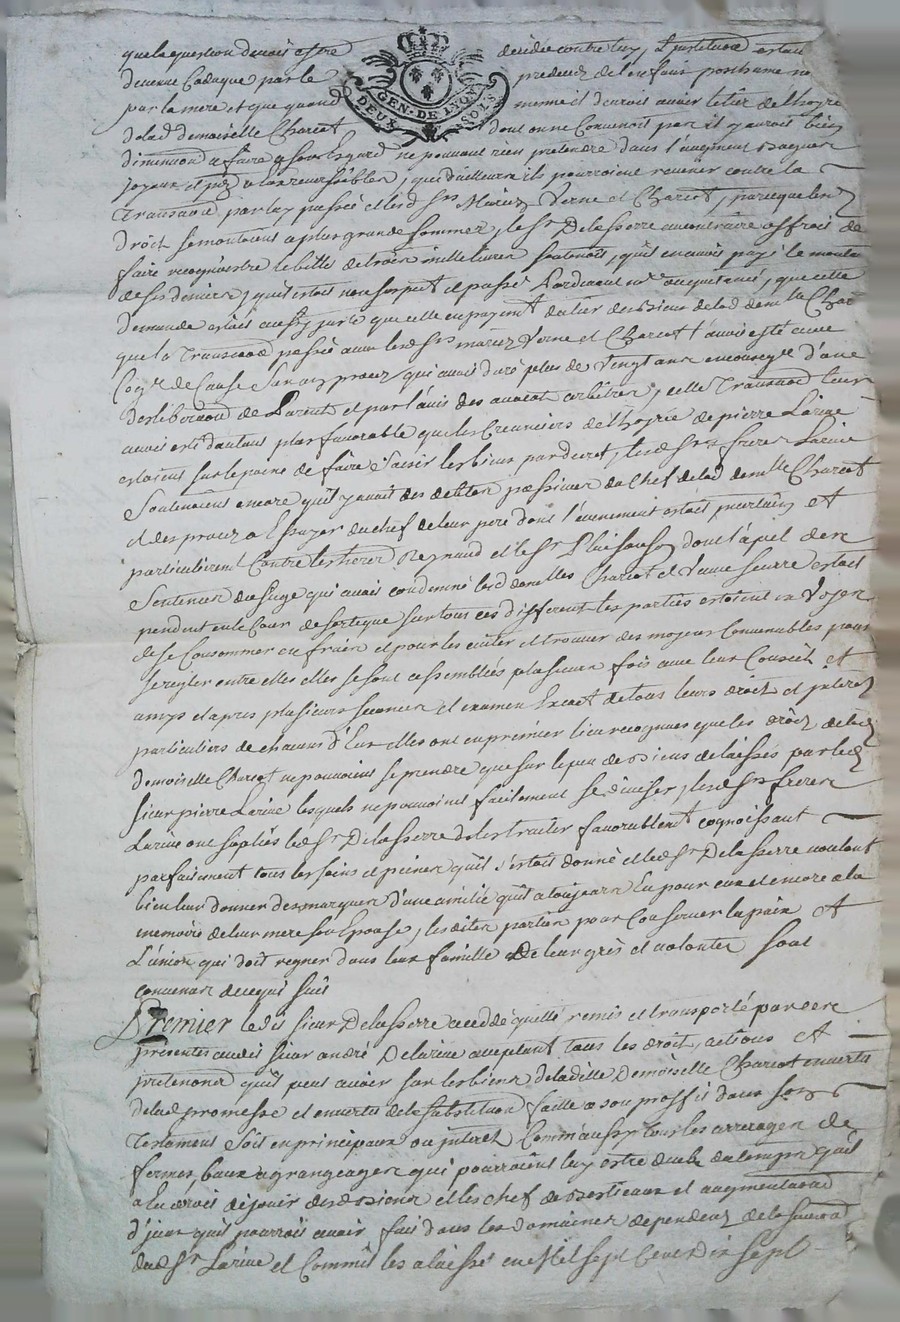 que la question devoit estre decidée contre luy, l'substituon estan
devenue Caduque par le predeces de l'enfan posthume ne
GEN. DE LYON
DEUX SOLS
par la mere, et que quand mesme il devroit avoir le tier de l'hoyrie
de lad demoiselle Charcot, dont on ne Convenoit pas il y auroit bien
diminuon a faire a son Esgard ne pouvant rien pretendre dans l'augment bagues
joyaux reversibles, que d'ailleurs ils pourroient revenir contre la
Transaon par luy passée et led srs Mariez Verne et Charcot, parce que les
droit se montoient a plus grande sommes, le Sr Delaserre au contraire offroit de
faire recognoistre le bille de trois mille livres soutenoit, qu'il en avoit payé le montan
de ses deniers, qu'il estoit non suspect
demande estoit aussy juste que celle en payement du tier des biens de lad demlle Char
que la Transaon passée avec lesd srs mariez Verne et Charcot l'avoit esté avec
Cogce de Cause Sur un procez qui avoit duré plus de vingt ans en consequce d'une
deliberaon de Parents et par l'avis des avocats arbitres, cette Transaon leur
avoit esté d'autant plus favorable que les Creanciers de l'hoyrie de pierre Larive
estoient sur le point de faire Saisir les biens par decret, lesd Srs freres Larive
Soutenoient encore qu'il y avoit des debtes passives du Chef de lad demlle Charcot
et des procez a Essuyer du chef de leur pere dont l'evenement estoit incertain et
particulierent Contre les hoirs Reynaud et le Sr dont l'apel de
Sentences du Juge qui avoit condemné lesd demlles Charcot et Veuve Seurre estoit
pendent en la Cour de sorte que sur tous ces differents les parties estoient en Voyes
de se Consommer en fraix et pour les eviter et trouver des moyens Convenables pour
se regler entre elles elles se sont assemblées plusieurs fois avec leur Conseil et
amis et apres plusieurs seances et examen Exact de tous leurs droit et interez
particuliers de chacuns d'Eux elles ont en premier lieu recognues que les droit de lad
demoiselle Charcot ne pouvoient se prendre que sur le peu de biens delaissés par led
sieur pierre Larive lesquels ne pouvoient facilement se diviser, lesd Srs freres
Larive ont supliés led Sr Delaserre de les traiter favorablent cognoissant
parfaitement tous les soins et peines qu'il s'estoit donné et led Sr Delaserre voulant
bien leur donner des marques d'une amitié qu'il a toujours Eu pour eux et encore a la
memoire de leur mere son Epouse, lesdites parties pour Conserver la paix et
L'union qui doit regner dans leur famille De leur grés et volontez sont
convenus de ce qui suit
Premier ledit sieur Delaserre a cedde quitté remis et transporté par ces
presentes audit sieur andré Delarive acceptant tous les droit, actions et
pretenons qu'il peut avoir sur les biens de ladite Demoiselle Charcot en vertu
de lad promesse et en vertu de la substituon faitte a son proffit dans son
Testament Soit en principaux ou interet Comm'aussy tous les arrerages de
fermes baux a grangeages qui pourroient luy estre deub du temps qu'il
a eu droit de jouir desd biens et les chef de bestieaux et augmentaon
d'jceux qu'il pourroit avoir fait dans les domaines dependent de la succeon
dud Sr Larive et Comm'il les a laissé en Mil sept Cent Dix sept